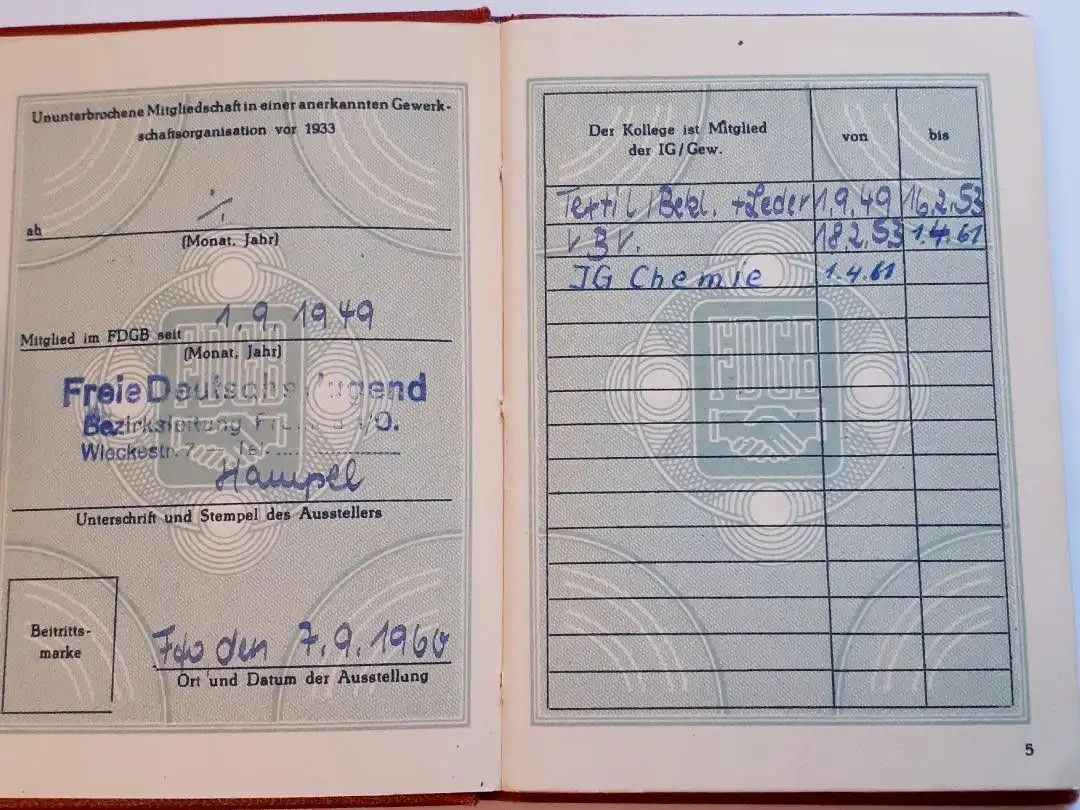 Ununterbrochene Mitgliedschaft in einer anerkannten Gewerk-
schaftsorganisation vor 1933
ab ./.
(Monat, Jahr)
Mitglied im FDGB seit 1.9.1949
(Monat, Jahr)
Freie Deutsche Jugend
Bezirksleitung /O.
Wieckestr. 7 – Tel.
Hampel
Unterschrift und Stempel des Ausstellers
Beitritts-
marke
Ffo den 7.9.1960
Ort und Datum der Ausstellung
Der Kollege ist Mitglied
der IG/Gew.
von
bis
Textil/Bekl. + Leder 1.9.49 16.2.53
18.2.53 1.4.61
IG Chemie 1.4.61
FDGB
FDGB
5